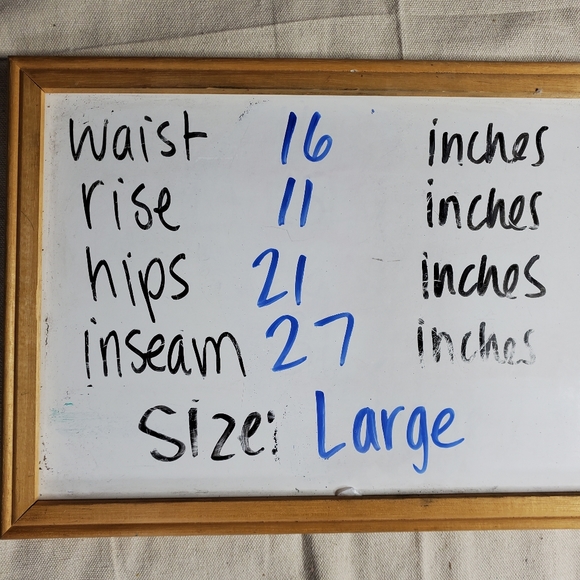 waist 16 inches
rise 11 inches
hips 21 inches
inseam 27 inches
Size: Large